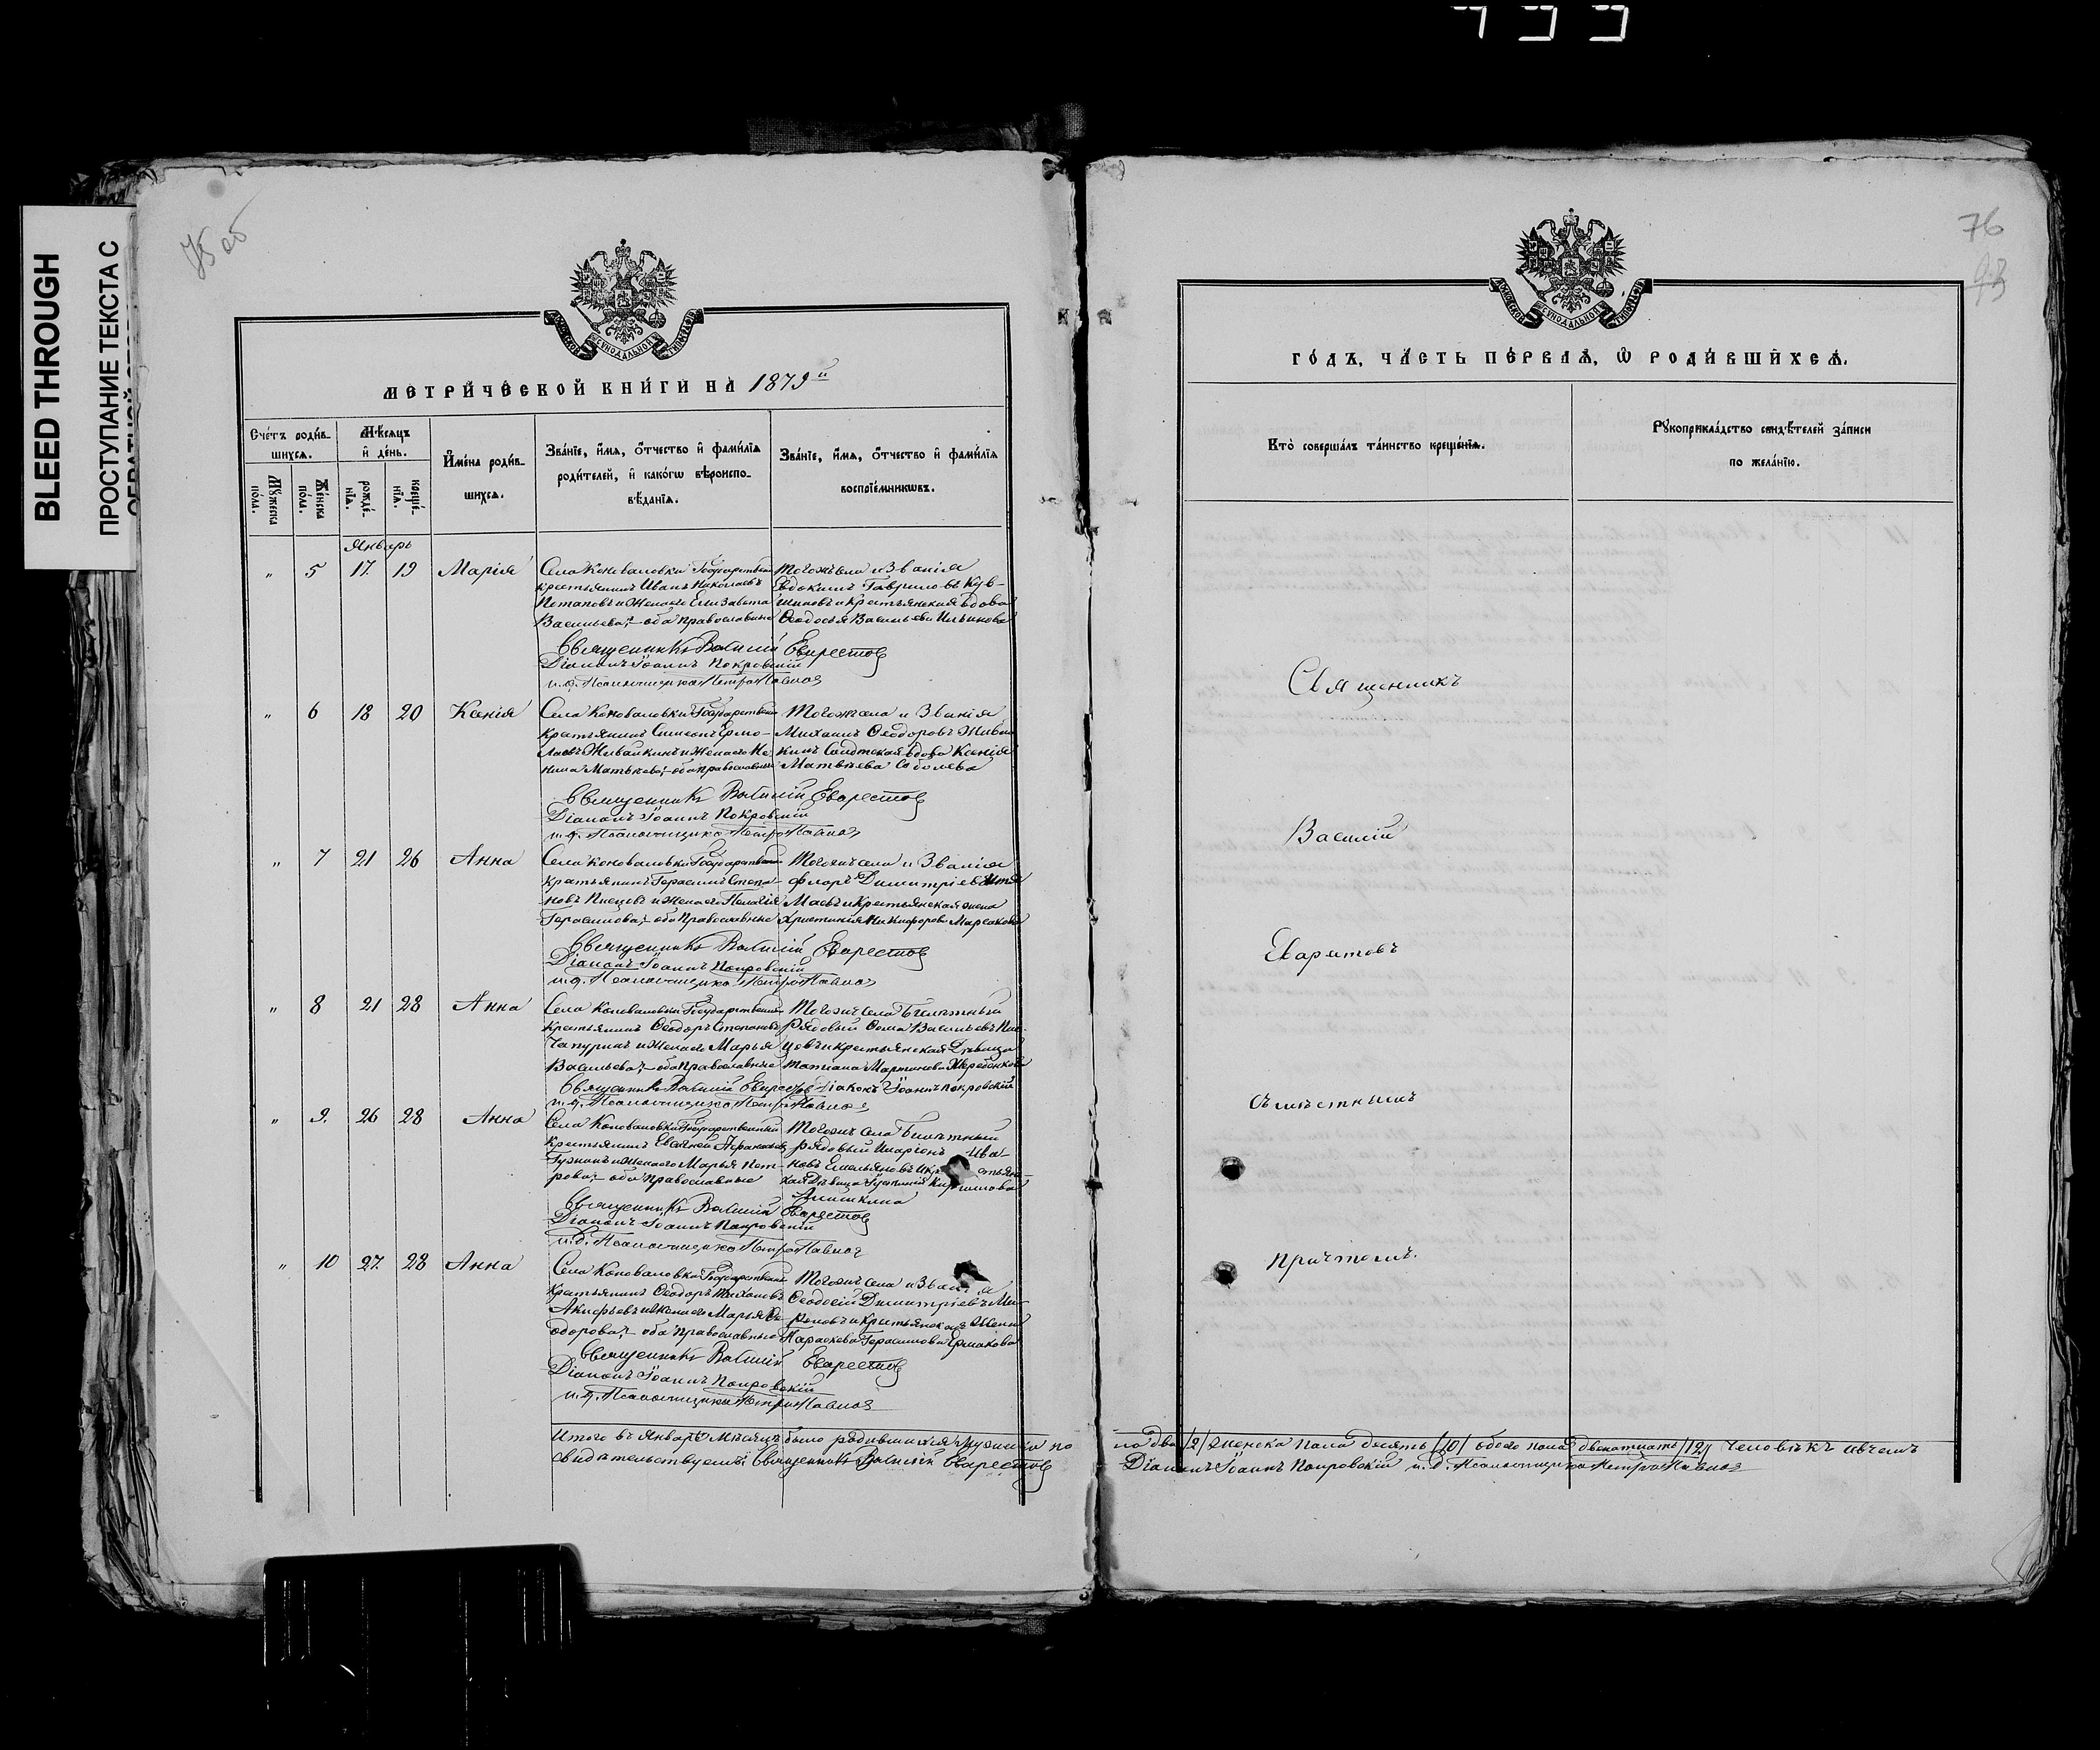 BLEED THROUGH
ПРОСТУПАНИЕ ТЕКСТА С
75 об
76
МЕТРИЧЕСКОЙ КНИГИ НА 1879й
Счетъ родив-
шихся.
Мужеска
пола.
Женска
пола.
Мѣсяцъ
и день.
рожде-
нія.
креще-
нія.
Имена родив-
шихся.
Званіе, имя, отчество и фамилія
родителей, и какогѡ вѣроиспо-
вѣданія.
Званіе, имя, отчество и фамилія
воспріемникѡвъ.
Январь
" 5 17. 19 Марія
Села Коноваловки Государствен
крестьянинъ Иванъ Николаевъ
Потаповъ и жена его Елизавета
Васильева,- оба православные
Тогожъ села и званія
Евдокимъ Гавриловъ Кув-
шиновъ и крестьянская вдова
Ѳеодосья Васильева
Священникъ Василій Еварестовъ
Діаконъ Іоаннъ Покровскій
и. д. Псаломщика Петръ Павлов
" 6 18 20 Ксенія
Села Коноваловки Государствен
крестьянинъ Симеонъ Ермо-
лаевъ Живайкинъ и жена его Не-
нила Матвѣева,- оба православные
Тогожъ села и званія
Михаилъ Ѳеодоровъ Живай
кинъ Солдтская вдова Ксенія
Матвѣева Соболева
Священникъ Василій Еварестов
Діаконъ Іоаннъ Покровскій
и. д. Псаломщика Петръ Павлов
" 7 21 26 Анна
Села Коноваловки Государствен
крестьянинъ Герасимъ Степа-
новъ Писцовъ и жена его Пелагія
Герасимова,- оба Православные
Тогожъ села и званія
Флоръ Димитріевъ
и крестьянская жена
Христинія Никифорова
Священникъ Василій Еварестов
Діаконъ Іоаннъ Покровскій
и. д. Псаломщика Петръ Павлов
" 8 21 28 Анна
Села Коноваловки Государственный
крестьянинъ Ѳеодоръ Степановъ
Чапуринъ и жена его Марья
Васильева,- оба Православные
Тогожъ села Билетный
рядовой Ѳома Васильевъ Пис
цовъ и крестьянская Дѣвица
Татіана Мартинова Жеребенкова
Священникъ Василій Еварестов Діаконъ Іоаннъ Покровскій
и. д. Псаломщика Петръ Павлов
" 9. 26 28 Анна
Села Коноваловки Государственный
крестьянинъ Евсевей
и жена его Марья Пет-
рова,- оба православные
Тогожъ села Билетный
рядовый Иларіонъ Ива-
новъ Емельяновъ и кр стьянс
кая Дѣвица Кирилова
Аншкина
Священникъ Василій Еварестов
Діаконъ Іоаннъ Покровскій
и. д. Псаломщика Петръ Павлов
" 10 27. 28 Анна
Села Коноваловки Государствен
крестьянинъ Ѳеодоръ Тихоновъ
Акифьевъ и жена его Марья Ѳе-
одорова,- оба православные
Тогожъ села и званія
Ѳеодосій Димитріевъ Ми-
роновъ и крестьянская жена
Параскева Герасимова Ермакова
Священникъ Василій Еварестов
Діаконъ Іоаннъ Покровскій
и. д. Псаломщика Петръ Павлов
Итого въ Январѣ мѣсяцѣ было родившихся мужеска по
ла два /2/ женска пола десять /10/ обоего пола двенатцать /12/ человѣкъ въ чемъ
свидѣтельствуемъ: Священникъ Василій Еварестов
Діаконъ Іоаннъ Покровскій и. д. Псаломщика Петръ Павлов
ГОДЪ, ЧАСТЬ ПЕРВАЯ, Ѡ РОДИВШИХСЯ.
Кто совершалъ таинство крещенія.
Рукоприкладство свидѣтелей записи
по желанію.
Священникъ
Василій
Еварестовъ
съ мѣстнымъ
причтомъ.